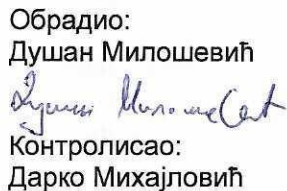 Обрадио:
Душан Милошевић
Душан Милошевић
Контролисао:
Дарко Михајловић